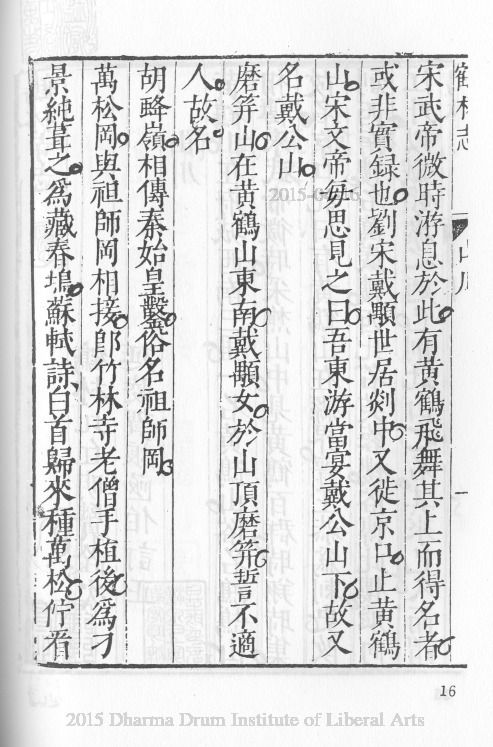 鶴林志
山川
一
宋武帝微時游息於此有黃鶴飛舞其上而得名者
或非實録也劉宋戴顒世居剡中又徙京口止黃鶴
山宋文帝每思見之曰吾東游當宴戴公山下故又
名戴公山
磨笄山在黃鶴山東南戴顒女於山頂磨笄誓不適
人故名
胡畧嶺相傳秦始皇鑿俗名祖師岡
萬松岡與祖師岡相接卽竹林寺老僧手植後爲刁
景純葺之爲藏春塢蘇軾詩白首歸來種萬松佇看
16
2015 Dharma Drum Institute of Liberal Arts